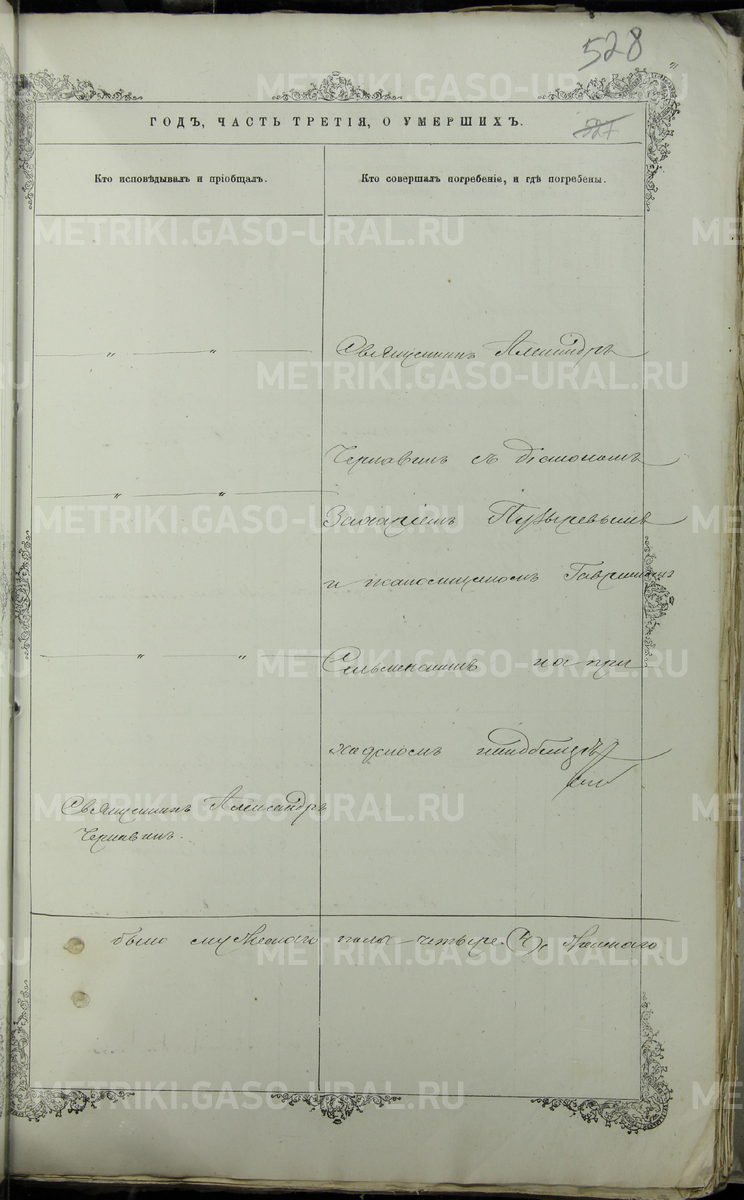 528
ГОДЪ, ЧАСТЬ ТРЕТІЯ, О УМЕРШИХЪ.
527
Кто исповѣдывалъ и пріобщалъ.
Кто совершалъ погребеніе, и гдѣ погребены.
Священникъ Александръ
Чернавинъ съ діакономъ
Захаріемъ Пузыревымъ
и псаломщикомъ Гавріиломъ
на при
ходскомъ кладбищѣ
Священникъ Александръ
Чернавинъ.
было мужескаго пола четыре (4), женскаго
METRIKI.GASO-URAL.RU